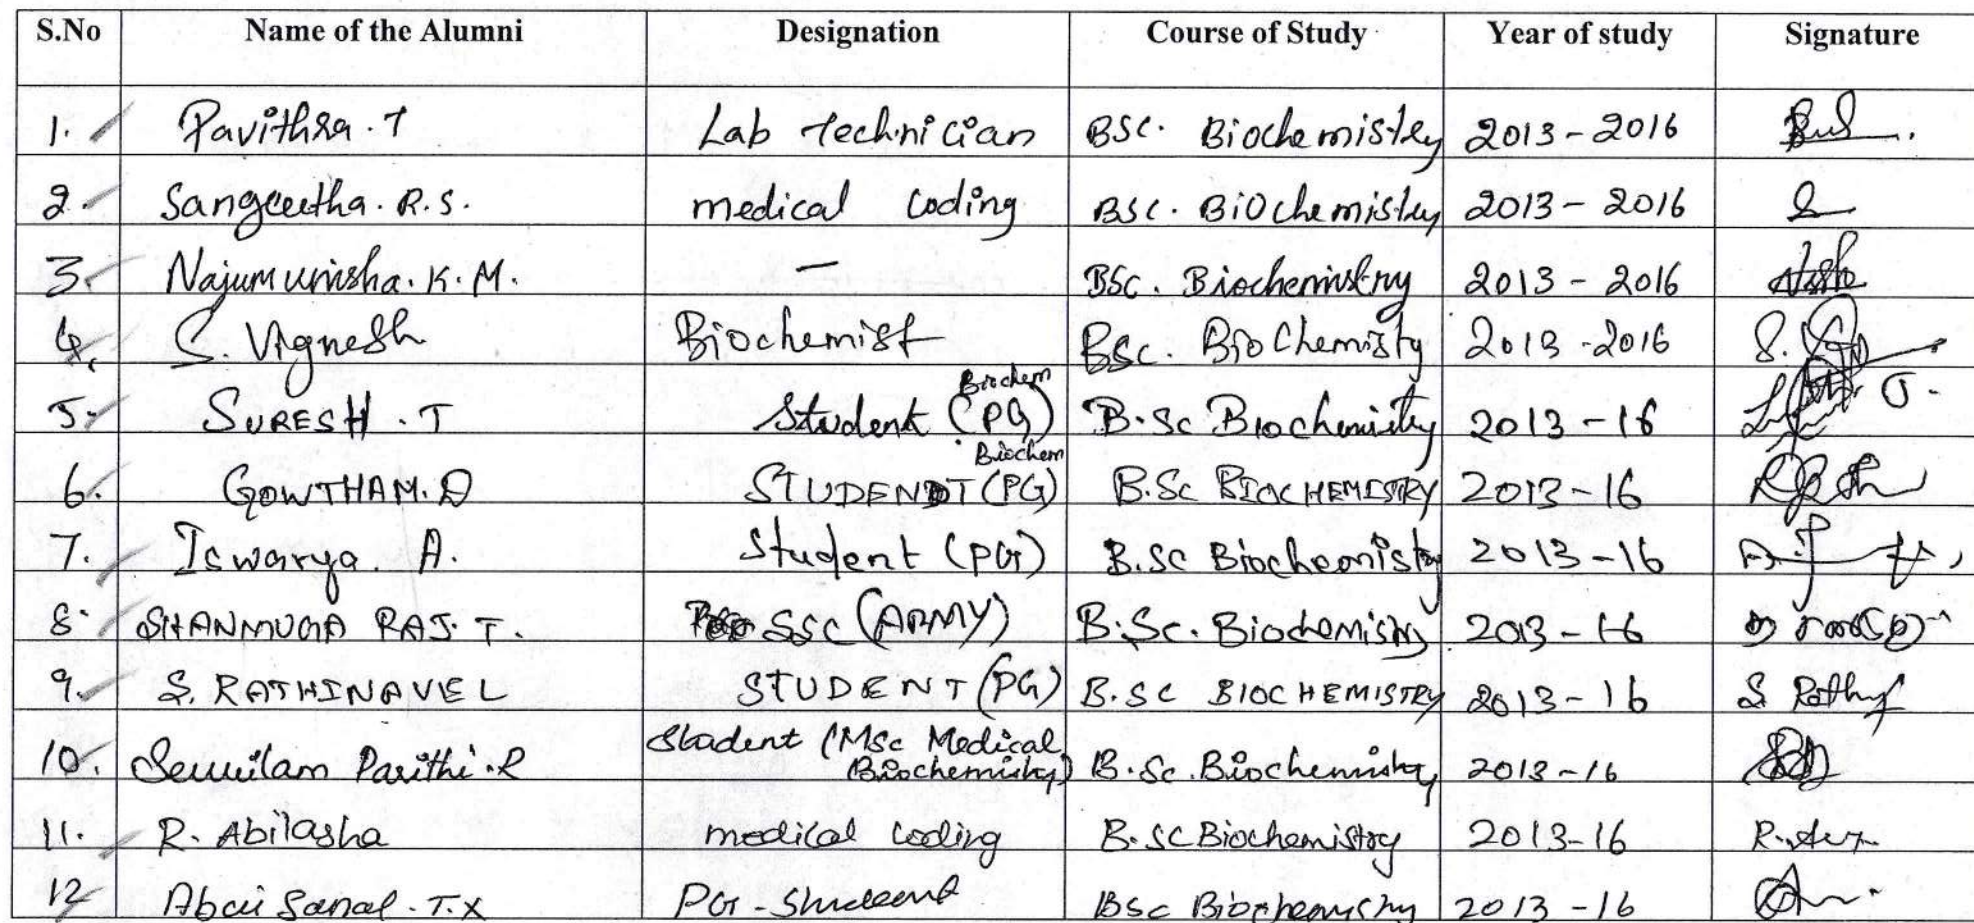 S.No Name of the Alumni Designation Course of Study Year of study Signature
1. Pavithra. T Lab Technician BSc. Biochemistry 2013 - 2016
2. Sangeetha. R.S. medical coding BSc. BiOchemistry 2013 - 2016
3. Najumunisha. K. M. — BSc. Biochemistry 2013 - 2016
4. S. Vignesh Biochemist BSc. BioChemisty 2013 - 2016
Biochem
5. SURESH . T Student (PG) B.Sc Biochemistry 2013 - 16
Biochem
6. GOWTHAM. D STUDENT (PG) B.Sc BIOCHEMISTRY 2013 - 16
7. Iswarya. A. Student (PG) B.Sc Biochemistry 2013 - 16
8. SHANMUGA RAJ. T. SSC (ARMY) B.Sc. Biochemistry 2013 - 16
9. S. RATHINAVEL STUDENT (PG) B.SC BIOCHEMISTRY 2013 - 16
Student (MSc Medical
10. Parithi. R Biochemistry) B.Sc. Biochemistry 2013 - 16
11. R. Abilasha medical coding B.SC Biochemistry 2013-16
12 T.X PG - Student BSc Biochemistry 2013 - 16